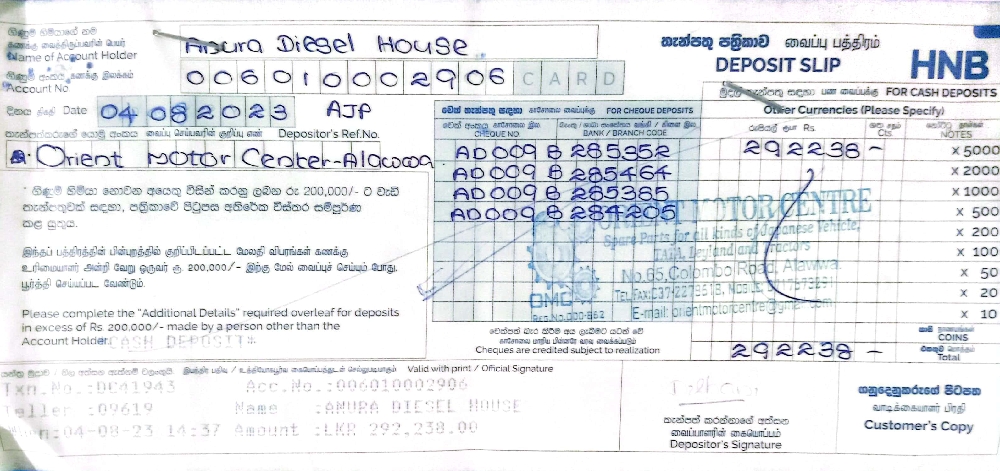 ගිණුම් හිමියාගේ නම
கணக்கு வைத்திருப்பவரின் பெயர்
Name of Account Holder
Anura Diesel House
තැන්පතු පත්‍රිකාව வைப்பு பத்திரம்
DEPOSIT SLIP
HNB
ගිණුම් අංකය கணக்கு இலக்கம்
Account No
006010002906 CARD
මුදල් තැන්පතු සඳහා பண வைப்புக்கு FOR CASH DEPOSITS
දිනය திகதி Date 04 08 2023 AJP
චෙක් තැන්පතු සඳහා காசோலை வைப்புக்கு FOR CHEQUE DEPOSITS
Other Currencies (Please Specify)
Depositor's Ref.No.
චෙක් අංකය காசோலை இல.
CHEQUE NO
BANK / BRANCH CODE
රුපියල් ரூபா Rs
Cts
NOTES
Orient Motor Center-Alawwa
AD009 B 285352
292238 -
x 5000
AD009 B 285464
x 2000
AD009 B 285365
x 1000
AD009 B 284205
x 500
x 200
x 100
x 50
x 20
x 10
* ගිණුම් හිමියා නොවන අයෙකු විසින් කරනු ලබන රු 200,000/- ට වැඩි
තැන්පතුවක් සඳහා, පත්‍රිකාවේ පිටුපස අතිරේක විස්තර සම්පූර්ණ
කළ යුතුය.
இந்தப் பத்திரத்தின் பின்புறத்தில் குறிப்பிடப்பட்ட மேலதி விபரங்கள் கணக்கு
உரிமையாளர் அன்றி வேறு ஒருவர் ரூ. 200,000/- இற்கு மேல் வைப்புச் செய்யும் போது,
பூர்த்தி செய்யப்பட வேண்டும்.
Please complete the "Additional Details" required overleaf for deposits
in excess of Rs. 200,000/- made by a person other than the
Account Holder.
CASH DEPOSIT
ORIENT MOTOR CENTRE
Spare Parts for all kinds of Japanese Vehicle,
TATA, Leyland and Tractors
No.65, Colombo Road, Alawwa.
OMC
E-mail: orientmotorcentre@gmail.com
චෙක්පත් බැර කිරීම අය ලැබීමට යටත් වේ
Cheques are credited subject to realization
COINS
Total
292238 -
Valid with print / Official Signature
Txn.No.:DC41943 Acc.No.:006010002906
Teller :09619 Name :ANURA DIESEL HOUSE
:04-08-23 14:37 Amount :LKR 292,238.00
තැන්පත් කරන්නාගේ අත්සන
வைப்பாளரின் கையொப்பம்
Depositor's Signature
ගනුදෙනුකරුගේ පිටපත
வாடிக்கையாளர் பிரதி
Customer's Copy